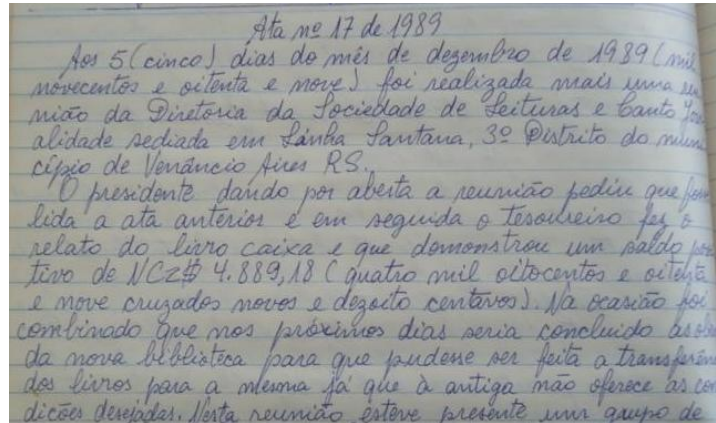 Ata nº 17 de 1989
Aos 5 (cinco) dias do mês de dezembro de 1989 (mil
novecentos e oitenta e nove) foi realizada mais uma reu
nião da Diretoria da Sociedade de Leituras e Canto
alidade sediada em Linha Santana, 3º Distrito do muni
cípio de Venâncio Aires RS.
O presidente dando por aberta a reunião pediu que fosse
lida a ata anterior e em seguida o tesoureiro fez o
relato do livro caixa e que demonstrou um saldo posi
tivo de NCz$ 4.889,18 (quatro mil oitocentos e oitenta
e nove cruzados novos e dezoito centavos). Na ocasião foi
combinado que nos próximos dias seria concluido as obras
da nova biblioteca para que pudesse ser feita a transferên
dos livros para a mesma já que a antiga não oferece as con
dicões desejadas. Nesta reunião esteve presente um grupo de